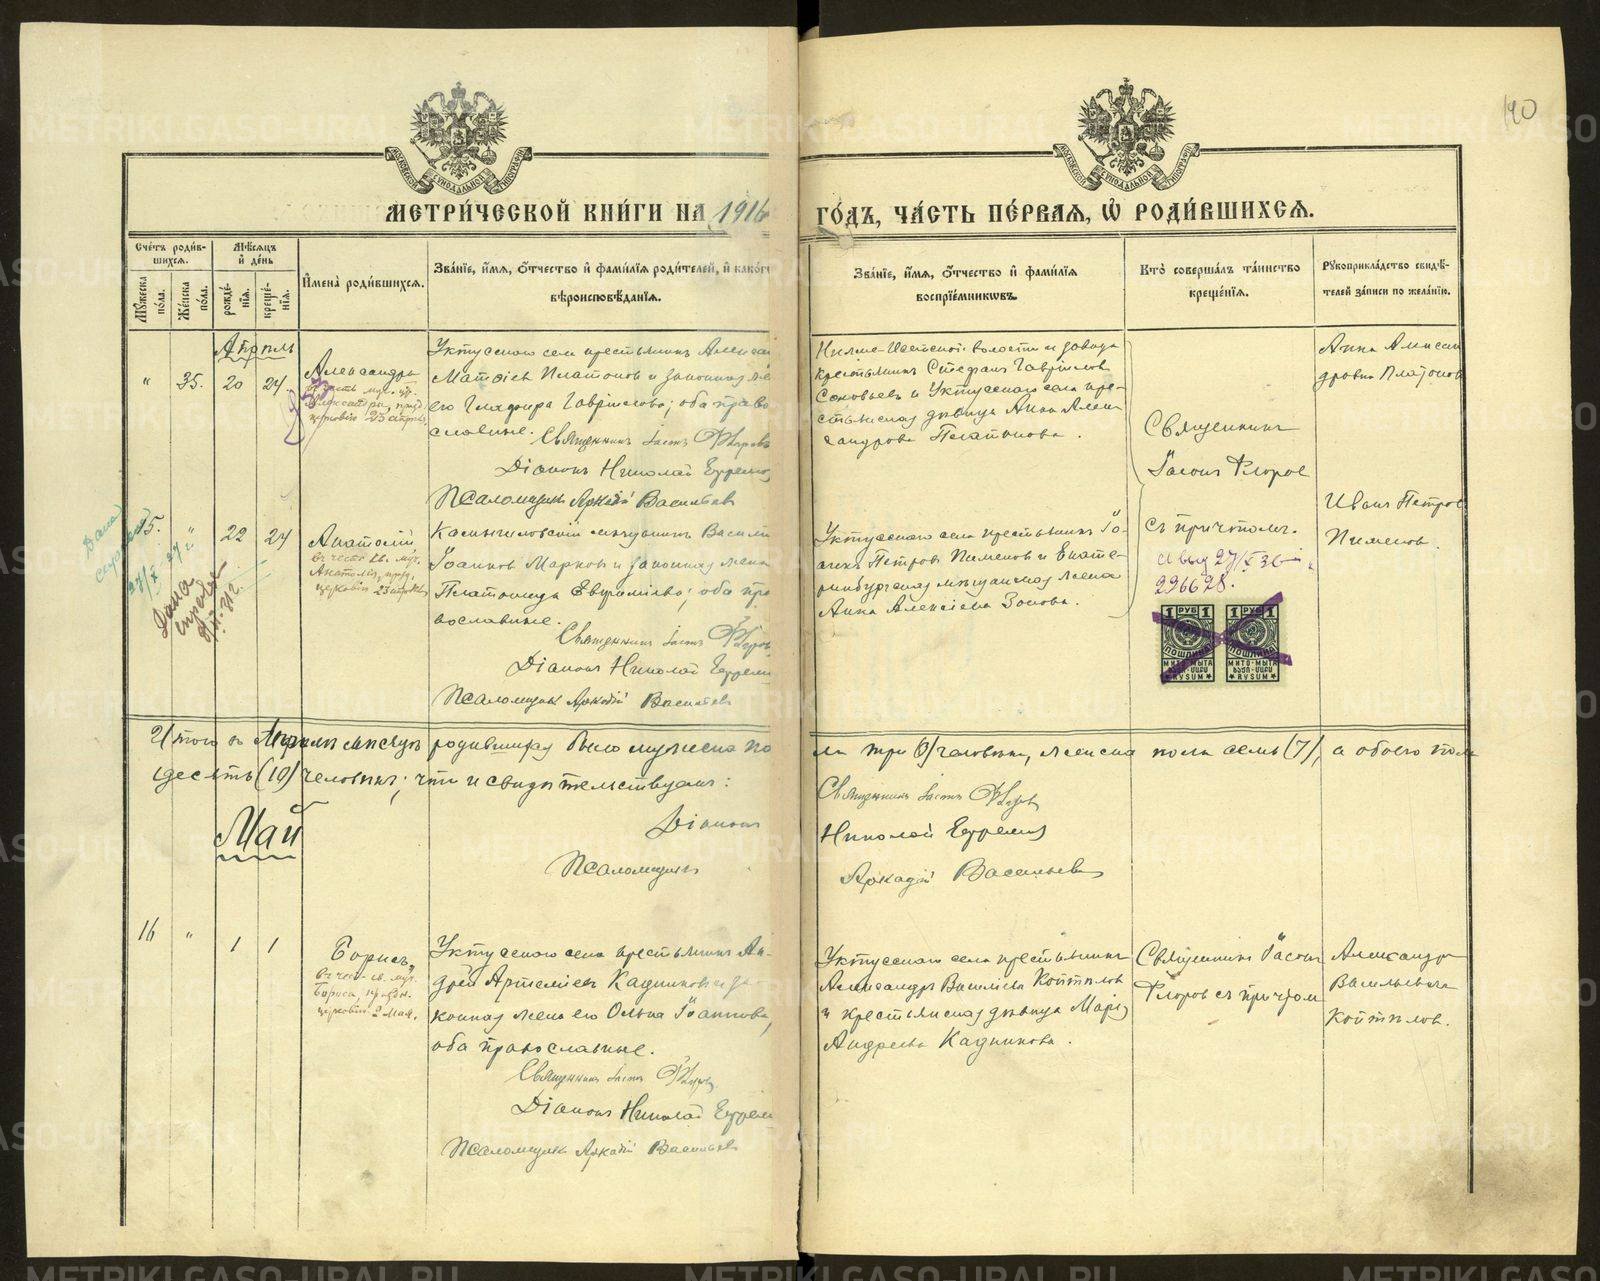 190
МОСКОВСКОЙ СѴНОДАЛЬНОЙ ТИПОГРАФІИ
МОСКОВСКОЙ СѴНОДАЛЬНОЙ ТИПОГРАФІИ
МЕТРИ́ЧЕСКОЙ КНИ́ГИ НА 1916
ГО́ДЪ, ЧА́СТЬ ПЕ́РВАЯ, Ѡ РОДИ́ВШИХСЯ.
Сче́тъ роди́в-
шихся.
Мꙋжеска по́ла.
Же́нска по́ла.
Мѣ́сяцъ
и де́нь
рожде́-
нїя.
креще́-
нїя.
Имена̀ роди́вшихся.
Зва́нїе, и́мя, ѻ́тчество и фами́лїя роди́телей, и како́гѡ
вѣроисповѣ́данїя.
Зва́нїе, и́мя, ѻ́тчество и фами́лїя
воспрїе́мникѡвъ.
Кто̀ соверша́лъ та́инство
креще́нїя.
Рꙋкоприкла́дство свидѣ́-
телей за́писи по жела́нїю.
Апрѣль
" 35. 20 24
Александра
въ честь муч. цр.
Александры, празд.
церковію 23 апрѣл.
Уктусскаго села крестьянинъ Алексан
Матѳіевъ Платоновъ и законная же
его Глафира Гавріилова; оба право
славные.
Священникъ Іасонъ Флоровъ
Діаконъ Николай Ефремов
Псаломщикъ Аркадій Васильевъ
Нижне-Исетской волости и завода
крестьянинъ Стефанъ Гавріиловъ
Соловьевъ и Уктусскаго села кре-
стьянская дѣвица Анна Алек-
сандрова Платонова.
Священникъ
Іасонъ Флоровъ
съ причтомъ.
Анна Алексан
дровна Платонов
15. " 22 24
Дана
справка
Анатолій
въ честь св. муч.
Анатолія, празд.
церковію 23 апрѣл.
Камышловскій мѣщанинъ Василі
Іоанновъ Марковъ и законная жена
Платонида Евфиміева; оба пра
вославные.
Священникъ Іасонъ Флоровъ
Діаконъ Николай Ефремо
Псаломщикъ Аркадій Васильевъ
Уктусскаго села крестьянинъ Іо-
аннъ Петровъ Пименовъ и Екате-
ринбургская мѣщанская жена
Анна Алексіева Зотова.
Иванъ Петров
Пименовъ.
27/X 36
296628.
1 РУБ 1
ПОШЛИНА
МИТО-МЫТА
RVSUM
1 РУБ 1
ПОШЛИНА
МИТО-МЫТА
RVSUM
Итого въ Апрѣлѣ мѣсяцѣ родившихся было мужеска по
ла три (3) человѣка, женска пола семь (7), а обоего пола
десять (10) человѣкъ; что и свидѣтельствуемъ:
Священникъ Іасонъ Флоровъ
Діаконъ
Николай Ефремовъ
Псаломщикъ
Аркадій Васильевъ
Май
16 " 1 1
Борисъ,
въ честь св. муч.
Бориса, праздн.
церковію 2 Мая.
Уктусскаго села крестьянинъ Ан-
дрей Артеміевъ Кадниковъ и за-
конная жена его Ольга Іоаннова,
оба православные.
Священникъ Іасонъ Флоровъ
Діаконъ Николай Ефремо
Псаломщикъ Аркадій Васильевъ
Уктусскаго села крестьянинъ
Александръ Василіевъ Койтыловъ
и крестьянская дѣвица Марія
Андреева Кадникова.
Священникъ Іасонъ
Флоровъ съ причтомъ
Александръ
Васильевичъ
Койтыловъ.
METRIKI.GASO-URAL.RU